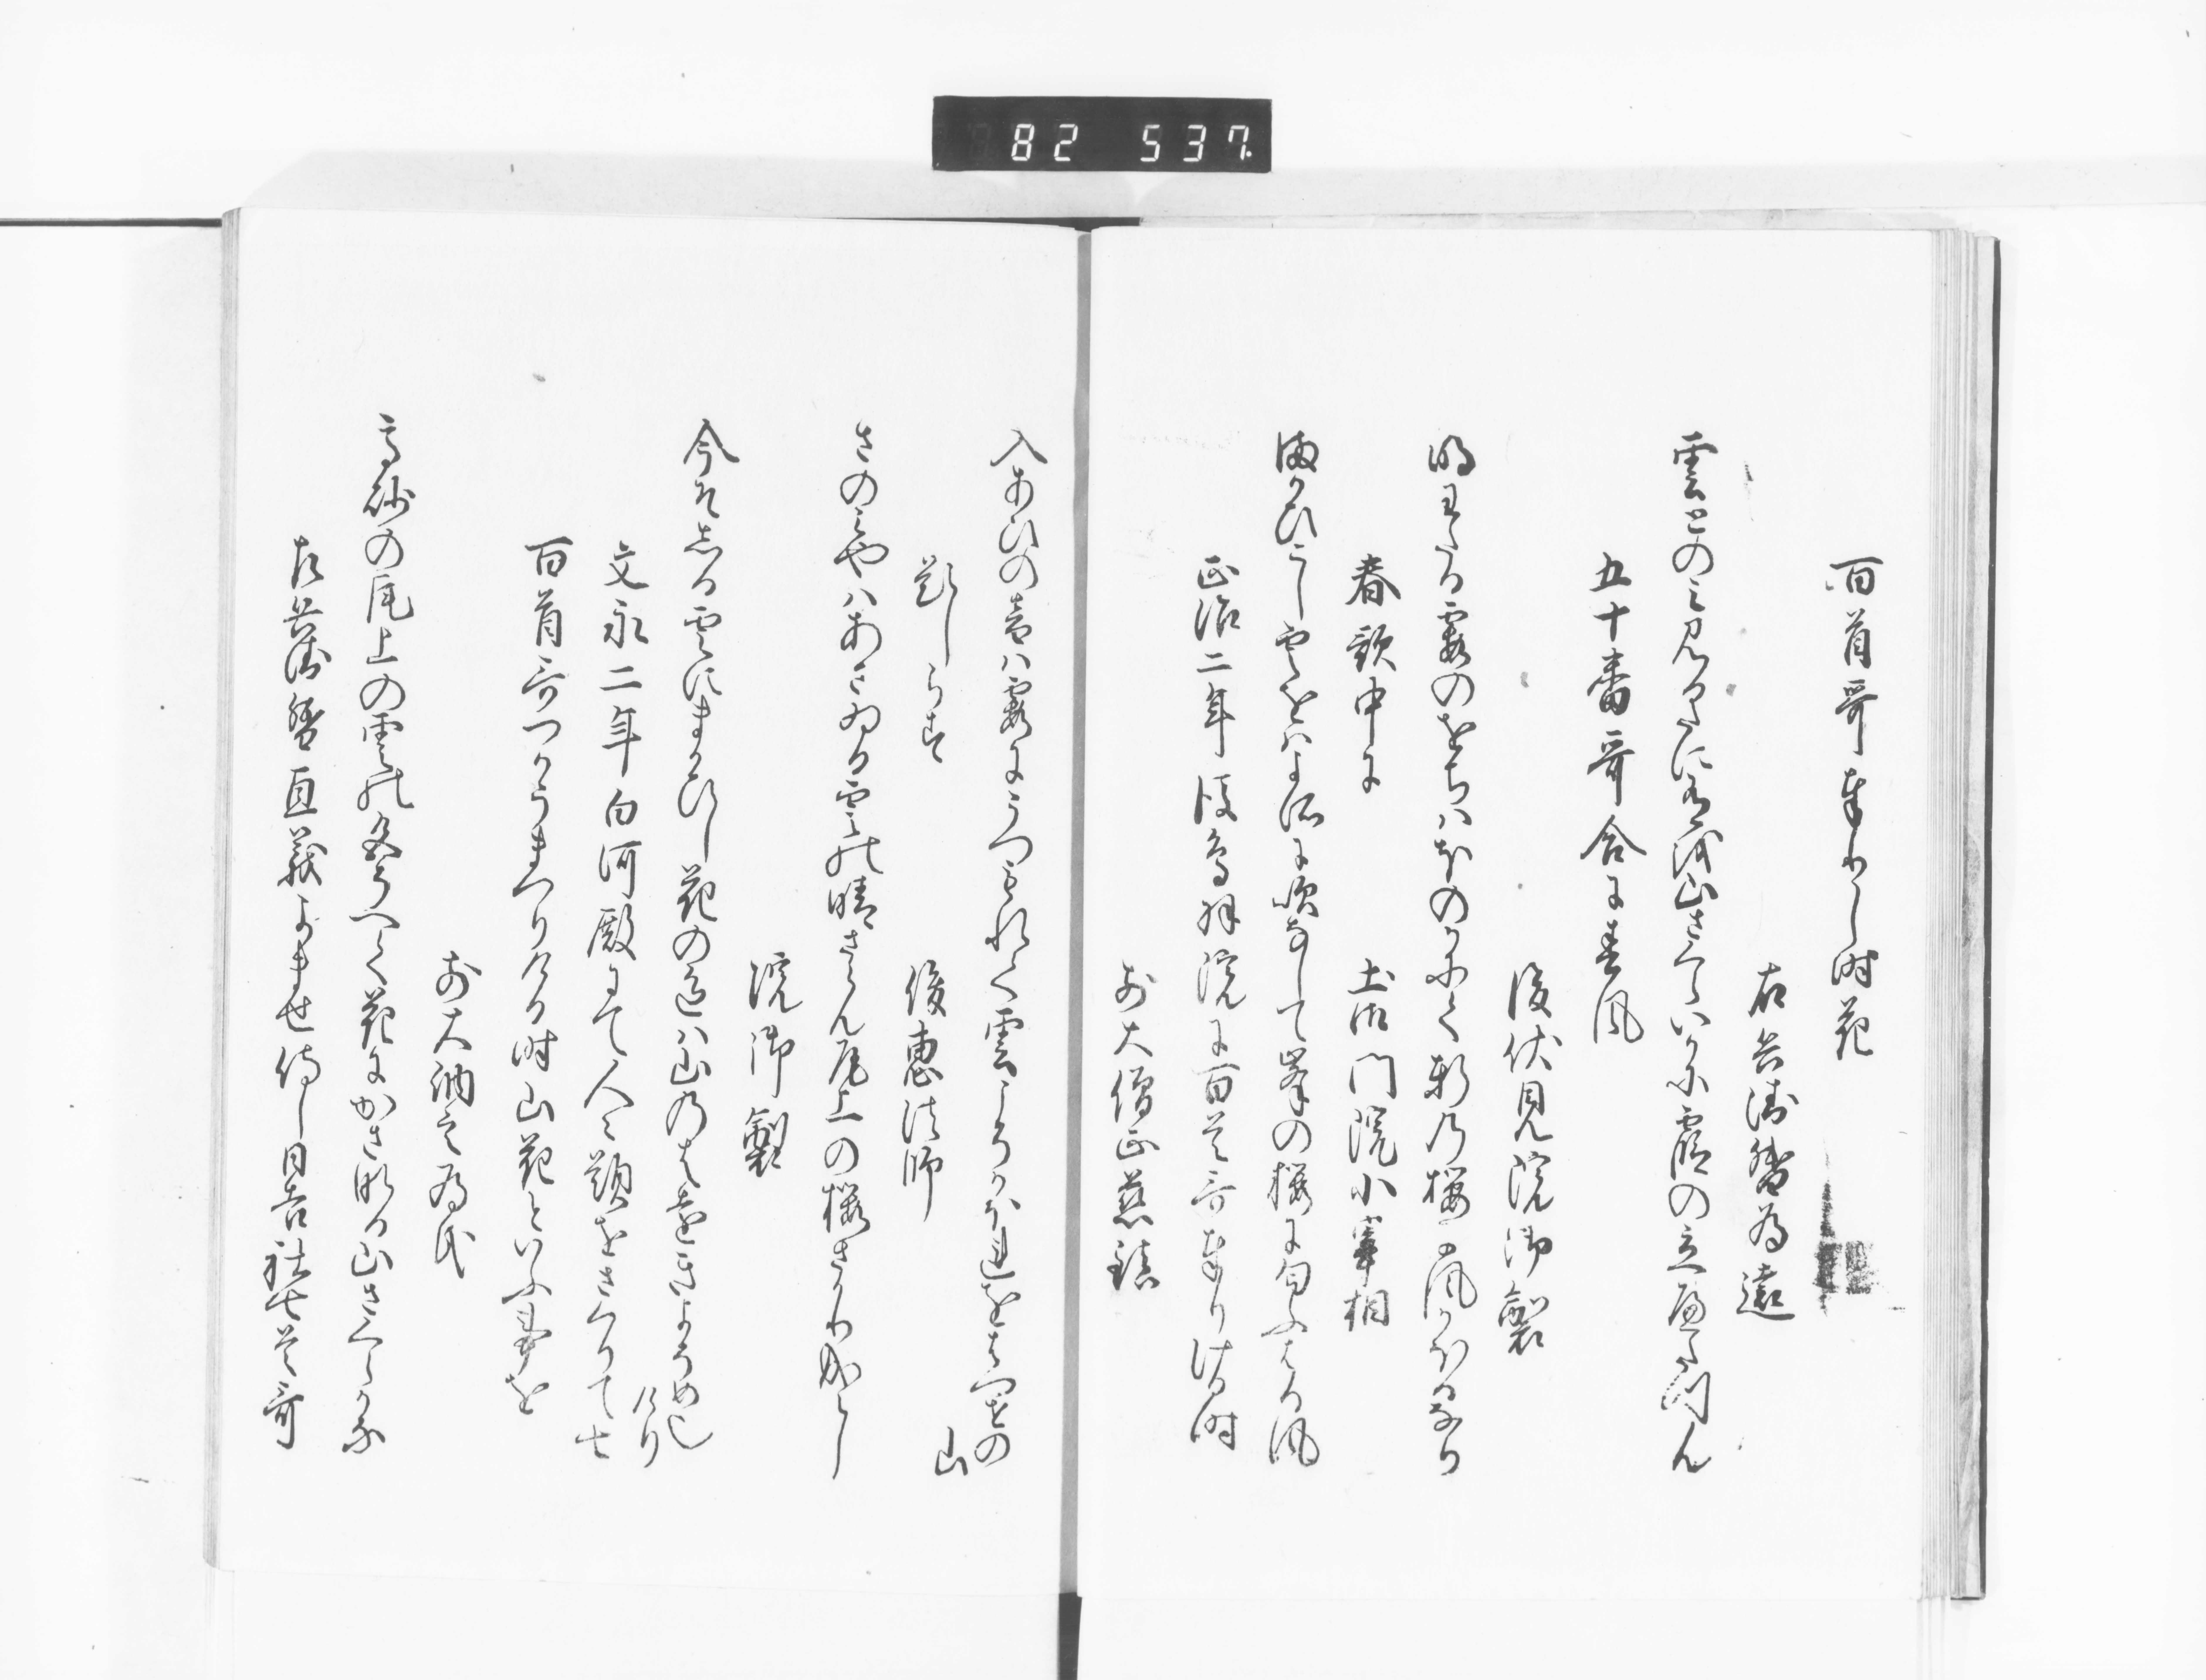 82 537
百首哥奉りし時花
右兵衛督為遠
雲とのみ見るたに有を山さくらいかに霞の立へたつらん
五十番哥合に春風
後伏見院御製
明わたる霞のをちはほのかにて軒の桜に風かほるなり
春歌中に
土御門院小宰相
まかひこし雲をはよそに吹なして峯の桜に匂ふはる風
正治二年後鳥羽院に百首哥奉りける時
前大僧正慈鎮
入あひの音は霞にうつもれて雲こそかほれをはつせの山
題しらす
俊恵法師
さのみやはあさゐる雲の晴さらん尾上の桜さかり成らし
院御製
今そしる雲にまかひし花の色は山のはをきよそめ也けり
文永二年白河殿にて人々題をさくりて七
百首哥つかうまつりける時山花といふ事を
前大納言為氏
高砂の尾上の雲の色そへて花にかさなる山さくらかな
左兵衛督直義よませ侍し日吉社七首哥